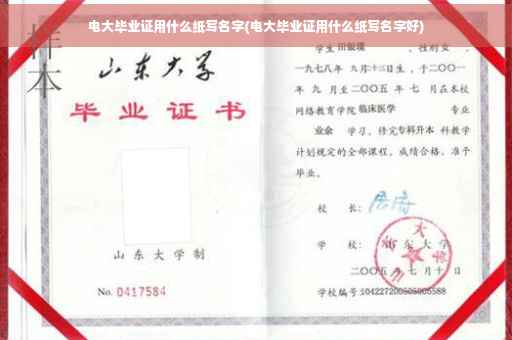 电大毕业证用什么纸写名字(电大毕业证用什么纸写名字好)
样本
山东大学
毕业证书
山东大学制
No. 0417584
学生 田银瑞 ,性别女 ,
一九七八年 九月十三日生,于二〇〇一
年 九 月至二〇〇五 年 七 月在本校
网络教育学院 临床医学 专业
业余 学习,修完专科升本 科教学
计划规定的全部课程,成绩合格,准予
毕业。
校 长:
学 校: 山东大学
二〇〇五 年 七 月 十 日
学校编号:104227200505005588